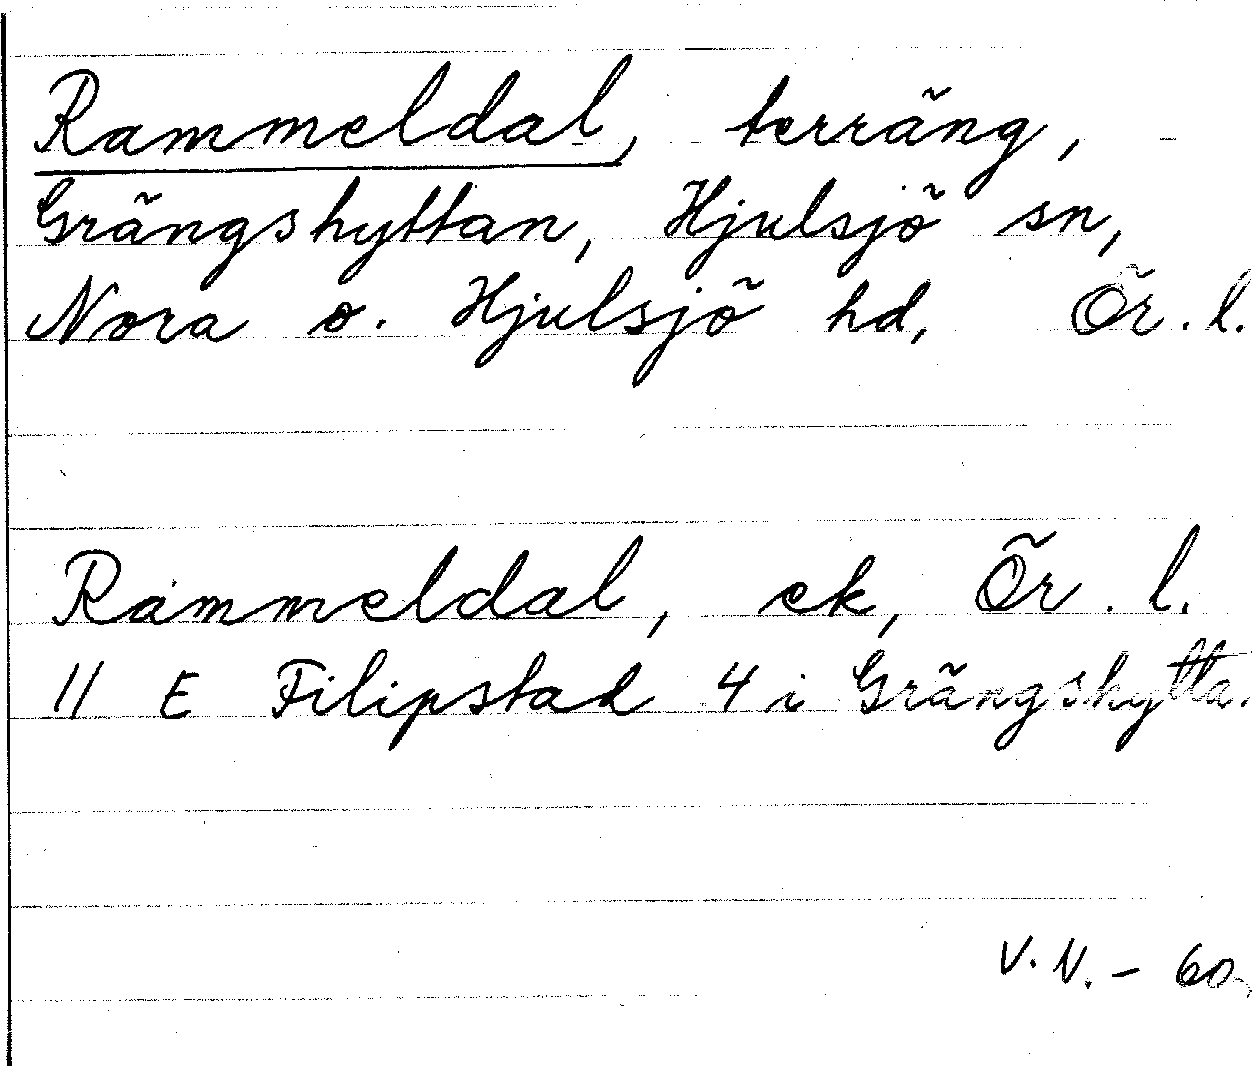 Rammeldal, terräng,
Grängshyttan, Hjulsjö sn,
Nora o. Hjulsjö hd, Ör. l.
Rammeldal, ek, Ör. l.
11 E Filipstad 4 i Grängshytta.
V. N. - 60